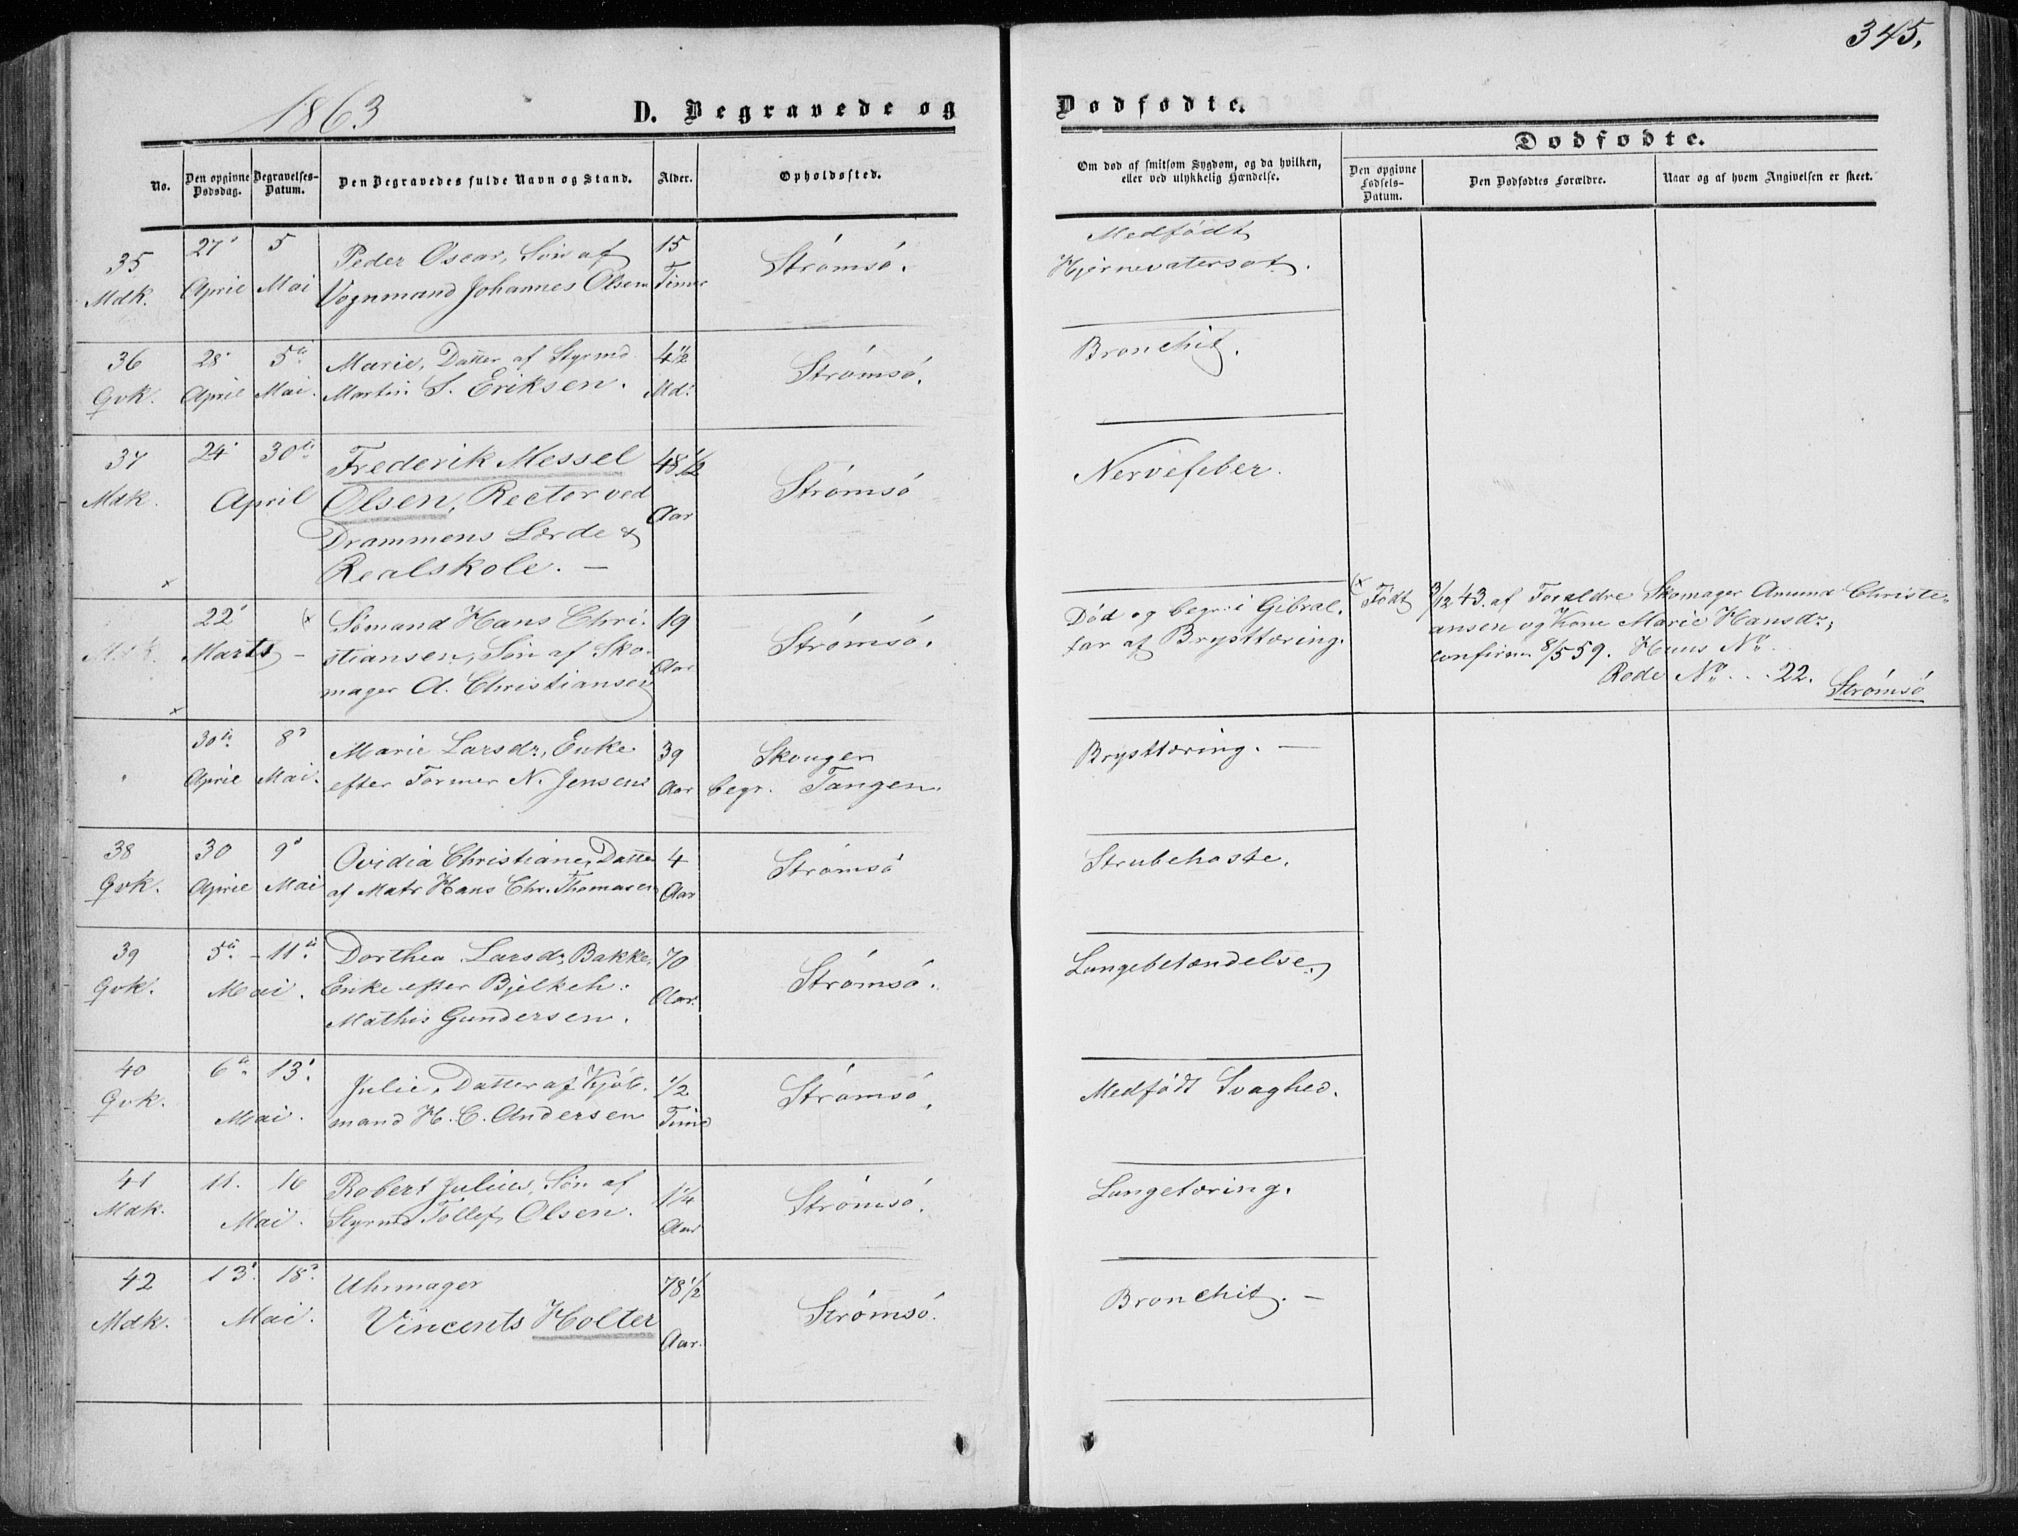 345.
1863
D. Begravede og
Dødfødte.
No.
Den opgivne Dødsdag.
Begravelses-Datum.
Den Begravedes fulde Navn og Stand.
Alder.
Opholdssted.
Om død af smitsom Sygdom, og da hvilken,
eller ved ulykkelig Hændelse.
Dødfødte.
Den opgivne Fødsels-Datum.
Den Dødfødtes Forældre.
Naar og af hvem Angivelsen er skeet.
35 27' 5 Peder Oscar, Søn af 15 Strømsø. Medfødt
Mdk. April Mai Vognmand Johannes Olsen Timer Hjernevatersot.
36 28' 5te Marie, Datter af Styrmd. 4 1/2 Strømsø. Bronchit.
Qvk. April Mai. Martin S. Eriksen. Md:
37 24' 30te Frederik Messel 48 1/2 Strømsø Nervefeber.
Mdk. April Olsen, Rector ved Aar
Drammens Lærde &
Realskole. —
x
22' (x Sømand Hans Chri- 19 Strømsø. Død og begr. i Gibral- (x Født 3/12 43. af Forældre Skomager Amund Christi-
Mdk. Marts – stiansen, Søn af Sko- Aar tar af Brysttæring. ansen og Kone Marie Hansdr,
mager A. Christiansen confirm 8/5 59. Huus No ..
Rode No . . . 22. Strømsø
x
30te 8' Marie Larsdr, Enke 39 Skouger Brysttæring. —
April Mai. efter Former N. Jensen Aar begr. Tangen.
38 30 9' Ovidia Christiane, Datter 4 Strømsø Strubehoste.
Qvk. April Mai af Matr Hans Chr. Thomasen Aar
39 5te – 11te Dorthea Larsdr Bakke, 70 Strømsø. Lungebetændelse.
Qvk. Mai. Enke efter Bjelkeh: Aar.
Mathis Gundersen.
40 6te 13' Julie, Datter af Kjøb- 1/2 Strømsø. Medfødt Svaghed.
Qvk. Mai. mand H. C. Andersen Time
41 11. 16 Robert Julius, Søn af 1 1/4 Strømsø. Lungetæring.
Mdk. Mai. Styrmd Tollef Olsen. Aar
42 13' 18' Uhrmager 78 1/2 Strømsø. Bronchit. —
Mdk. Mai. Vincents Holter Aar.